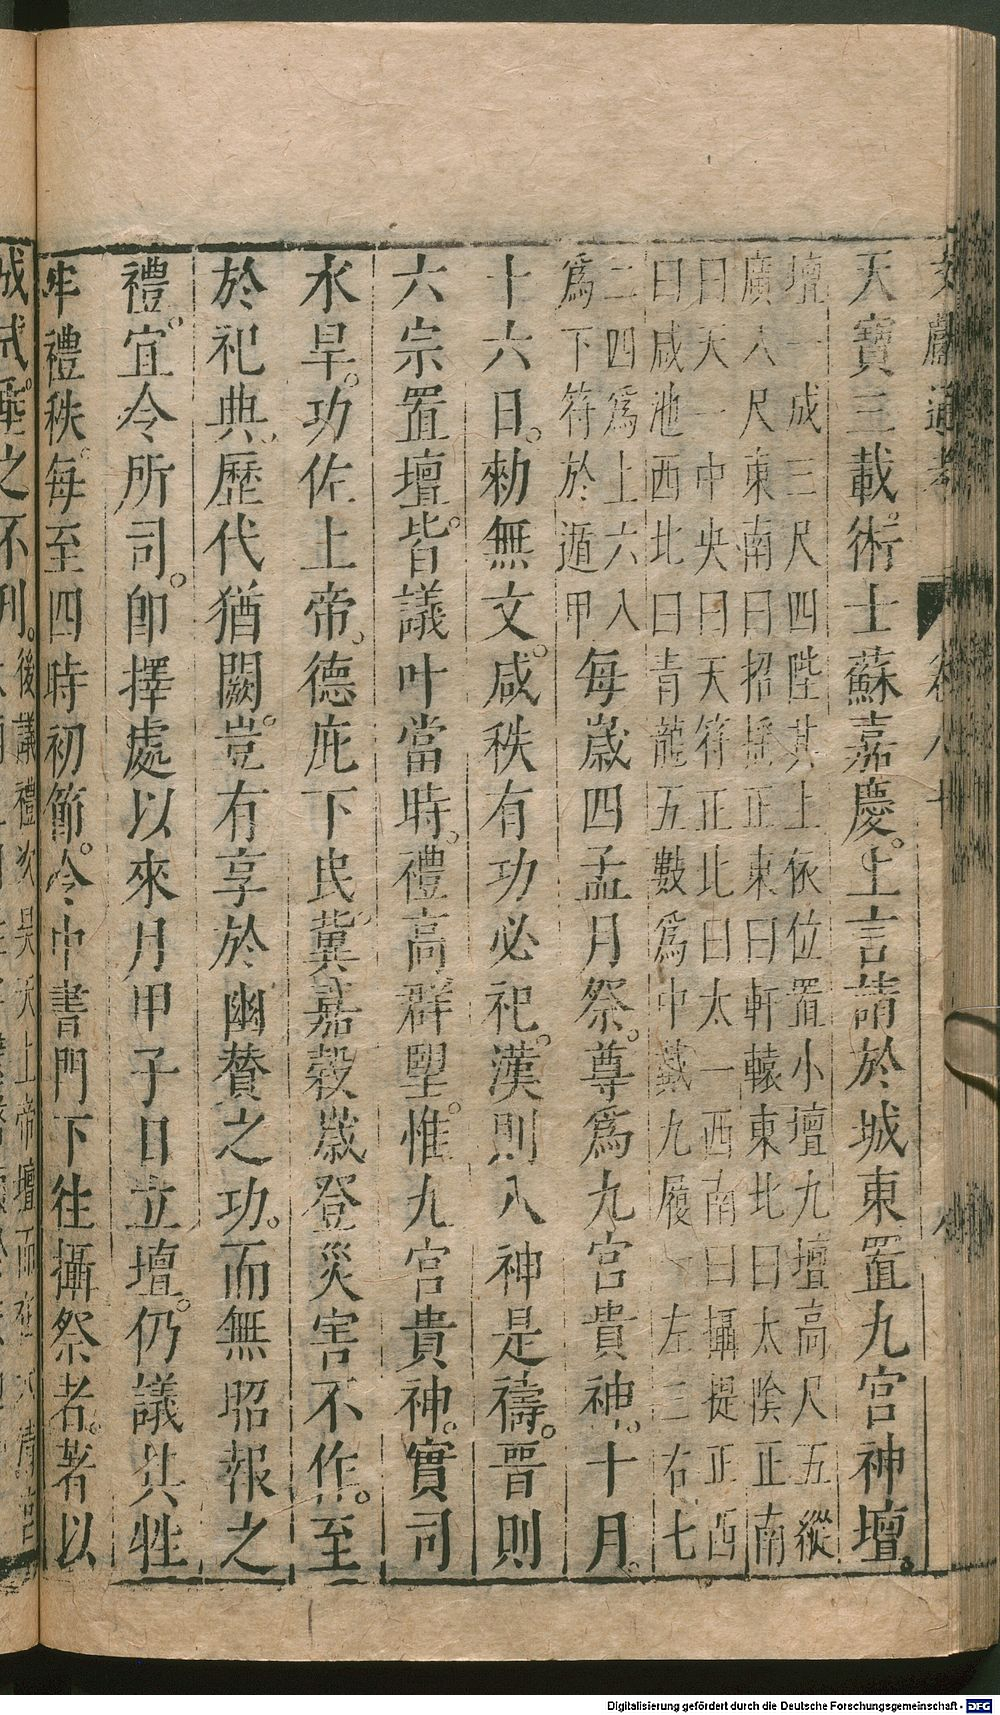 文獻通考 卷八十
天寶三載術士蘇嘉慶上言請於城東置九宮神壇
壇一成三尺四陛其上依位置小壇九壇高尺五縱
廣八尺東南曰招搖正東曰軒轅東北曰太陰正南
曰天一中央曰天符正北曰太一西南曰攝提正西
曰咸池西北曰青龍五數爲中戴九履一左三右七
二四爲上六八
爲下符於遁甲
每歲四孟月祭尊爲九宮貴神十月
十六日勑無文咸秩有功必祀漢則八神是禱晉則
六宗置壇皆議叶當時禮高群望惟九宮貴神實司
水旱功佐上帝德庇下民冀嘉穀歲登災害不作至
於祀典歷代猶闕豈有享於幽贊之功而無昭報之
禮宜令所司卽擇處以來月甲子日立壇仍議其牲
牢禮秩每至四時初節令中書門下往攝祭者著以
成式垂之不刋後議禮次昊天上帝壇而在太清宮
Digitalisierung gefördert durch die Deutsche Forschungsgemeinschaft - DFG